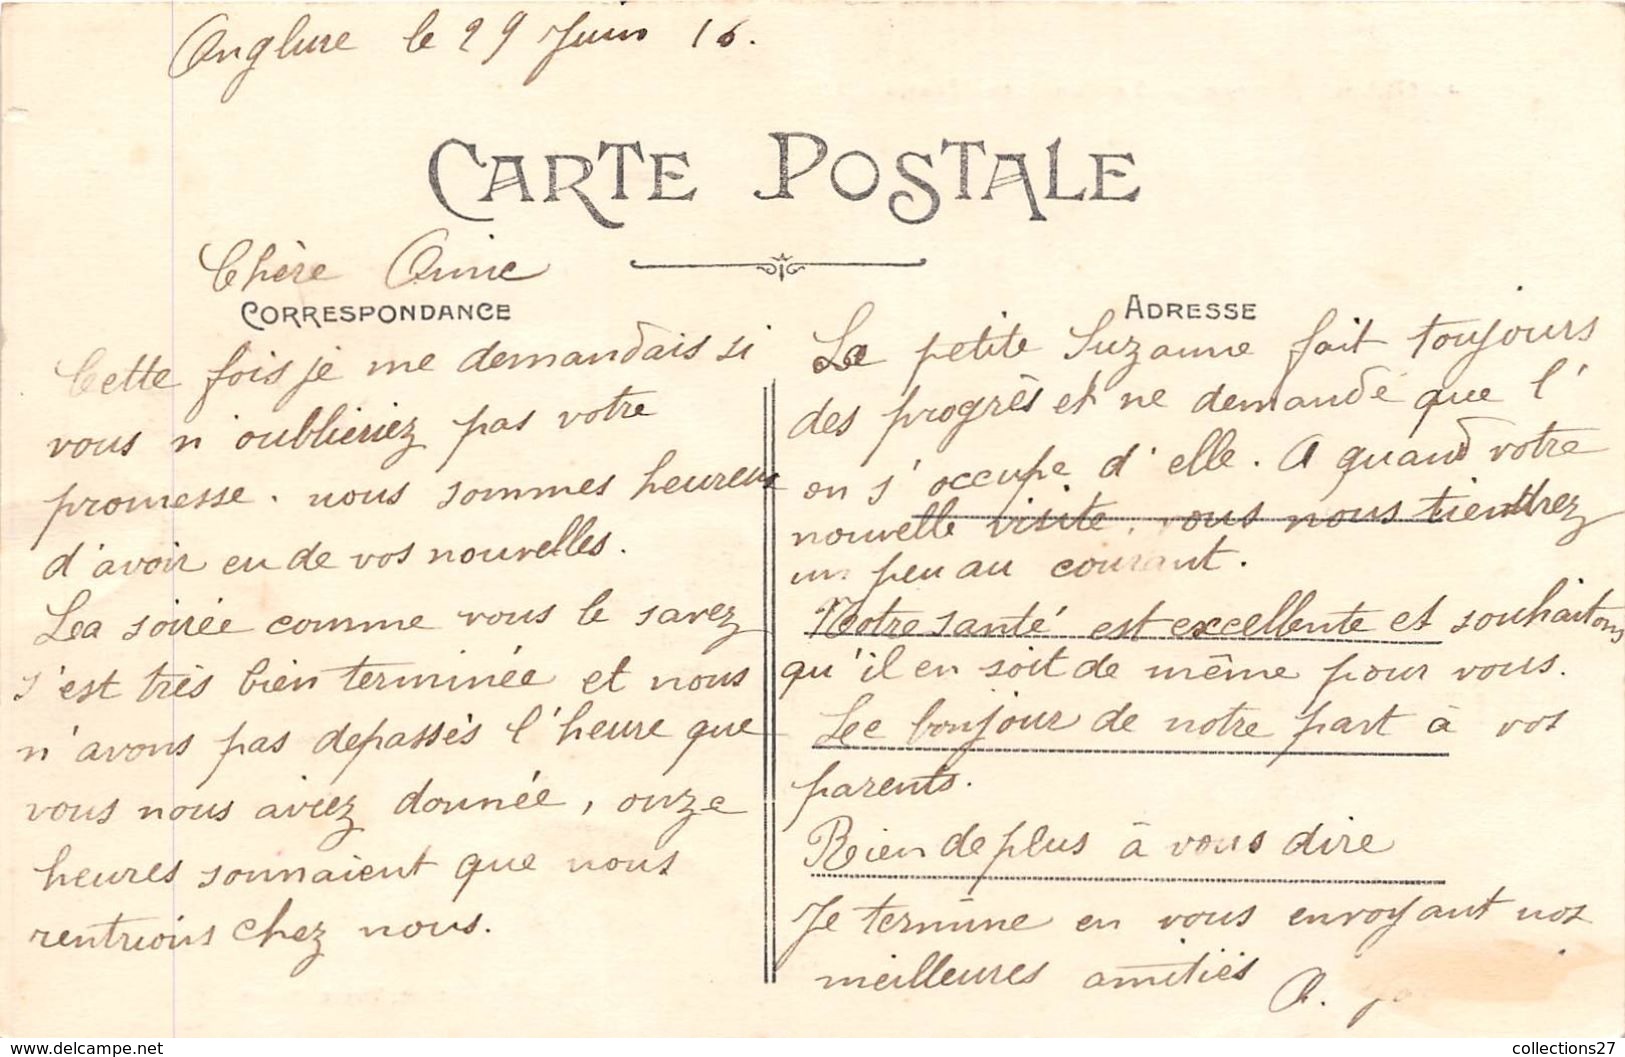 Anglure le 29 Juin 16.
CARTE POSTALE
Chère Amie
CORRESPONDANCE
Cette fois je me demandais si
vous n'oublieriez pas votre
promesse. nous sommes heureux
d'avoir eu de vos nouvelles.
La soirée comme vous le savez
s'est très bien terminée et nous
n'avons pas depassés l'heure que
vous nous aviez donnée, onze
heures sonnaient que nous
rentrions chez nous.
ADRESSE
La petite Suzanne fait toujours
des progrès et ne demande que l'
on s'occupe d'elle. A quand votre
nouvelle visite, vous nous tiendrez
un peu au courant.
Notre santé est excellente et souhaitons
qu'il en soit de même pour vous.
Le bonjour de notre part à vos
parents.
Rien de plus à vous dire
Je termine en vous envoyant nos
meilleures amitiés A.
www.delcampe.net
collections27